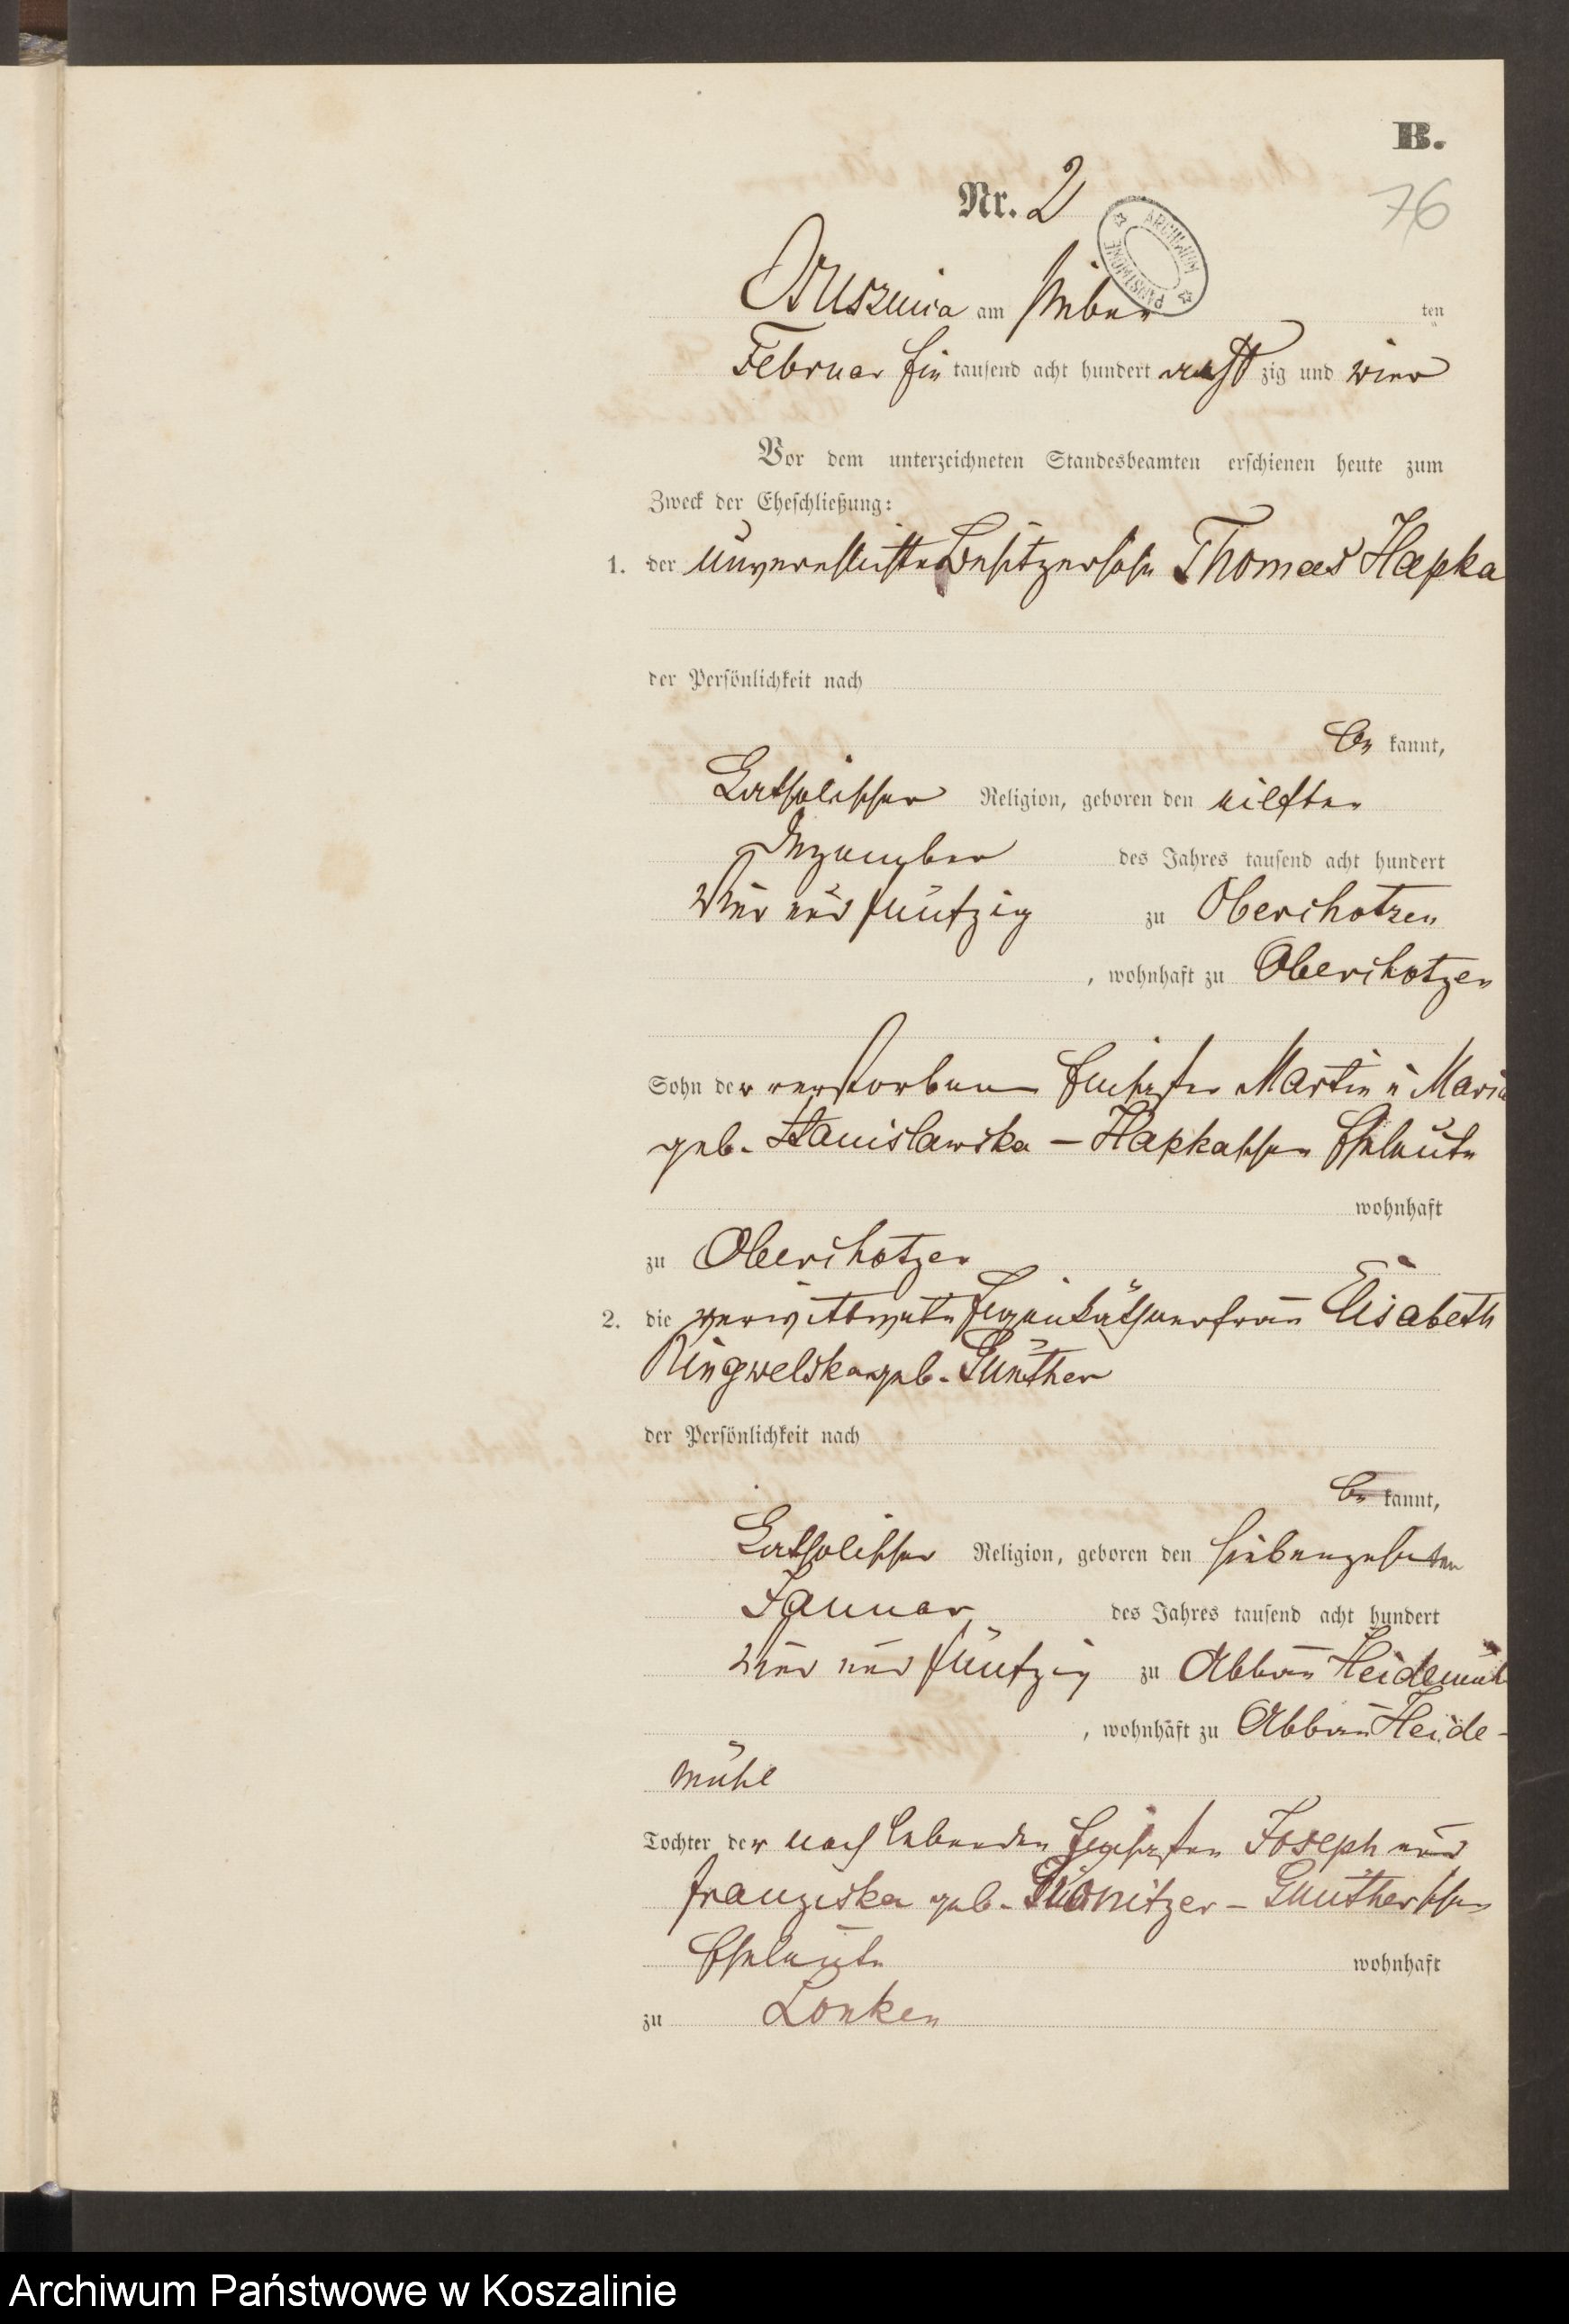 B.
76
Nr. 2
ARCHIWUM PAŃSTWOWE
Oßusznica am sieben ten
Februar Ein tausend acht hundert acht zig und vier
Vor dem unterzeichneten Standesbeamten erschienen heute zum
Zweck der Eheschließung:
1. der Besitzersohn Thomas Hapka
der Persönlichkeit nach
be kannt,
Katholischer Religion, geboren den eilften
Dezember des Jahres tausend acht hundert
vier und fünfzig zu Oberchotzen
, wohnhaft zu Oberchotzen
Sohn der verstorbenen Martin u Maria
geb. Stanislawska – Hapkaschen Eheleute
wohnhaft
zu Oberchotzen
2. die verwittwete Eigenkäthnerfrau Elisabeth
Ringwelska geb. Günther
der Persönlichkeit nach
be kannt,
Katholischer Religion, geboren den siebenzehnten
Januar des Jahres tausend acht hundert
vier und fünfzig zu Abbau Heidemühl
, wohnhaft zu Abbau Heide-
mühl
Tochter der noch lebenden Joseph und
Franziska geb. – Güntherschen
Eheleute wohnhaft
zu Lonken
Archiwum Państwowe w Koszalinie